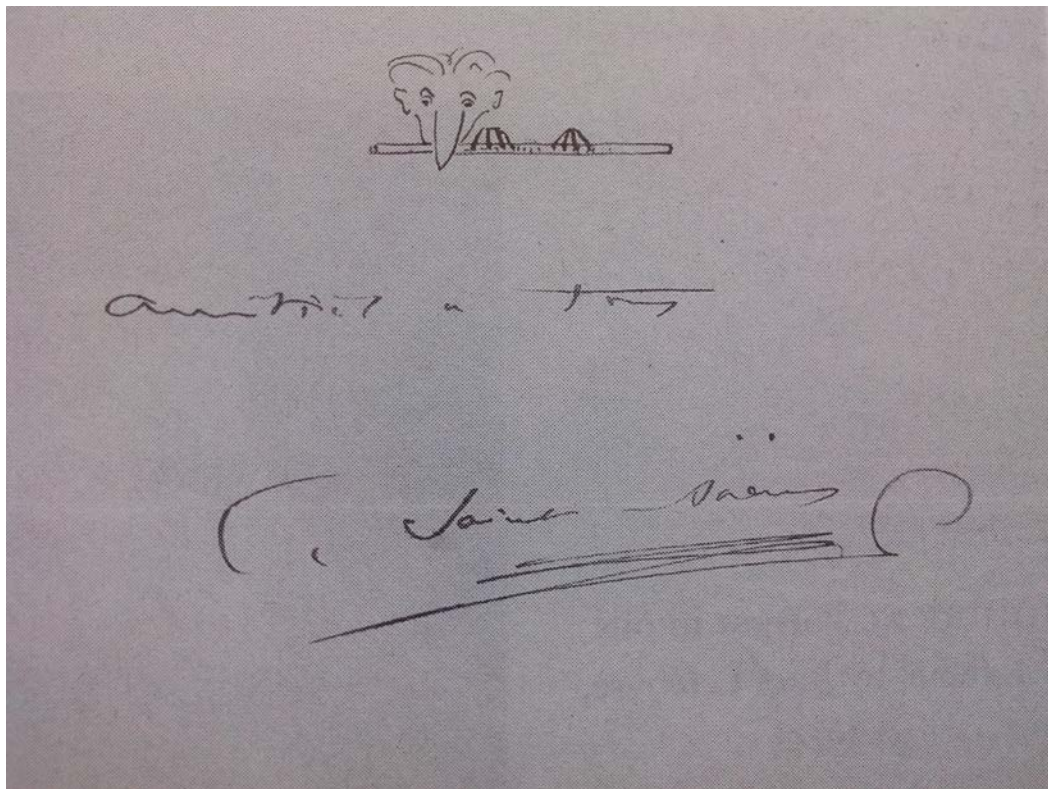 amitiés à tous
C. Saint-Saëns